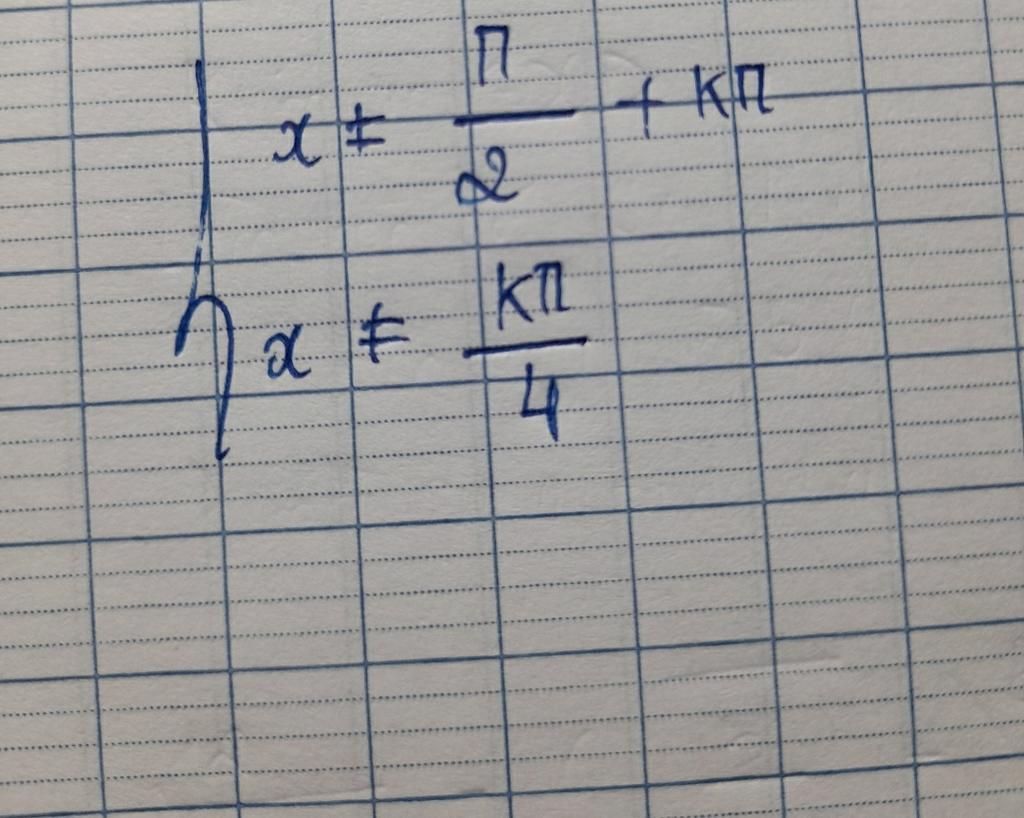 x ≠ π/2 + kπ
x ≠ kπ/4